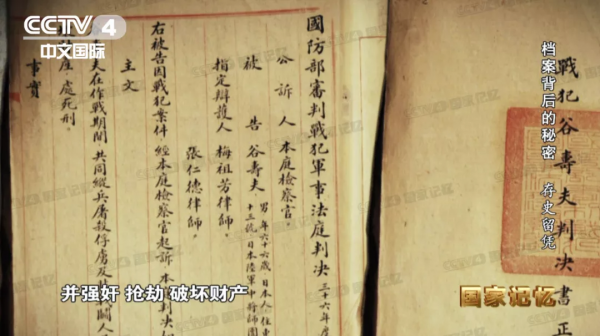 CCTV 4
中文国际
戰犯谷壽夫判決書正
档案背后的秘密 存史留凭
國防部審判戰犯軍事法庭判決
三十六年度
公訴人 本庭檢察官
被告 谷壽夫
男年六十六歲日本人住東
日本陸軍中將師團
指定辯護人 梅祖芳律師
張仁德律師
右被告因戰犯案件經本庭檢察官起訴本
主文
夫在作戰期間共同縱兵屠殺俘虜及
處死刑
事實
并强奸 抢劫 破坏财产
国家记忆